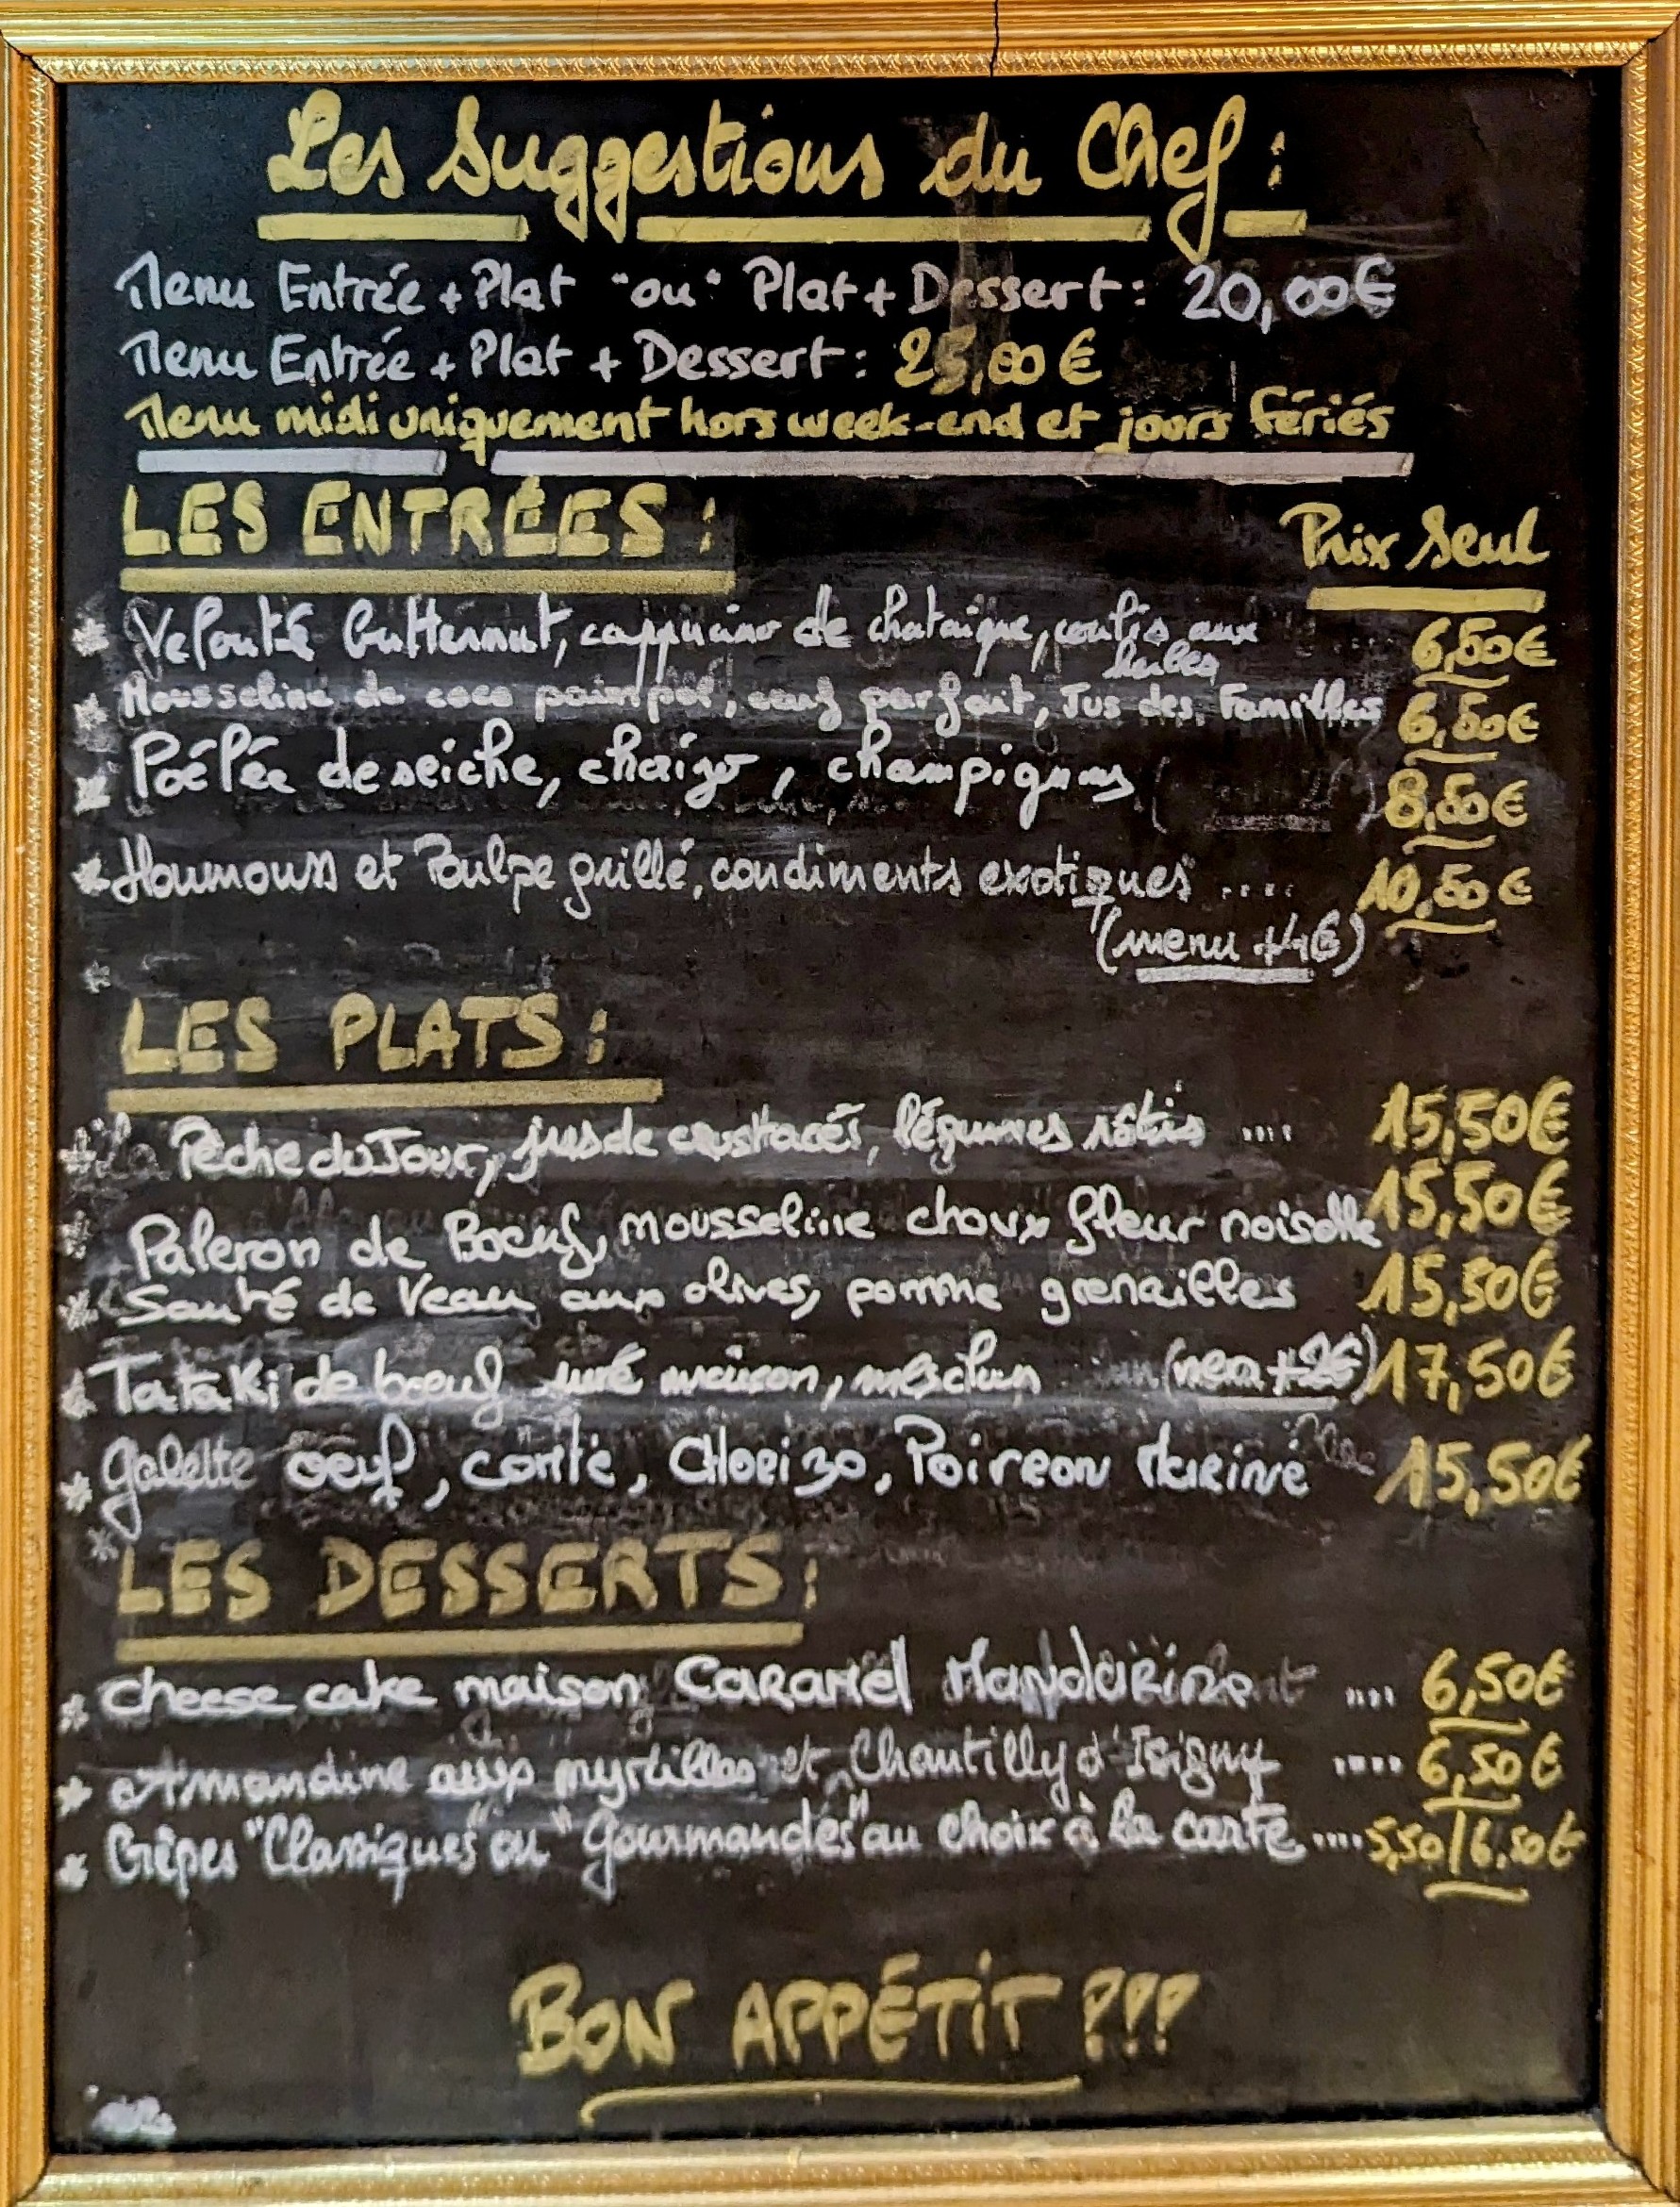 Les Suggestions du Chef :
Menu Entrée + Plat "ou" Plat + Dessert : 20,00€
Menu Entrée + Plat + Dessert : 25,00€
Menu midi uniquement hors week-end et jours fériés
LES ENTRÉES :
Prix Seul
* Velouté butternut, cappucino de chataigne, coulis aux 6,50€
* Mousseline de coco paimpol, oeuf parfait, Jus des Familles 6,50€
* Poêlée de seiche, choizo, champignons 8,50€
* Houmous et Poulpe grillé, condiments exotiques .... 10,50€
(menu +4€)
*
LES PLATS :
* la Pêche du Jour, jus de crustacés, légumes rôtis .... 15,50€
* Paleron de Boeuf, mousseline choux fleur noisette 15,50€
* Sauté de Veau aux olives, pomme grenailles 15,50€
* Tataki de boeuf maison, mesclun (menu +2€) 17,50€
* Galette oeuf, comté, Chorizo, Poireau Mariné 15,50€
*
LES DESSERTS :
* Cheese cake maison Caramel Mandarine .... 6,50€
* Amandine aux myrtilles et Chantilly d'Isigny .... 6,50€
* Crêpes "Classiques" ou "Gourmandes" au choix à la carte .... 5,50/6,50€
BON APPÉTIT !!!